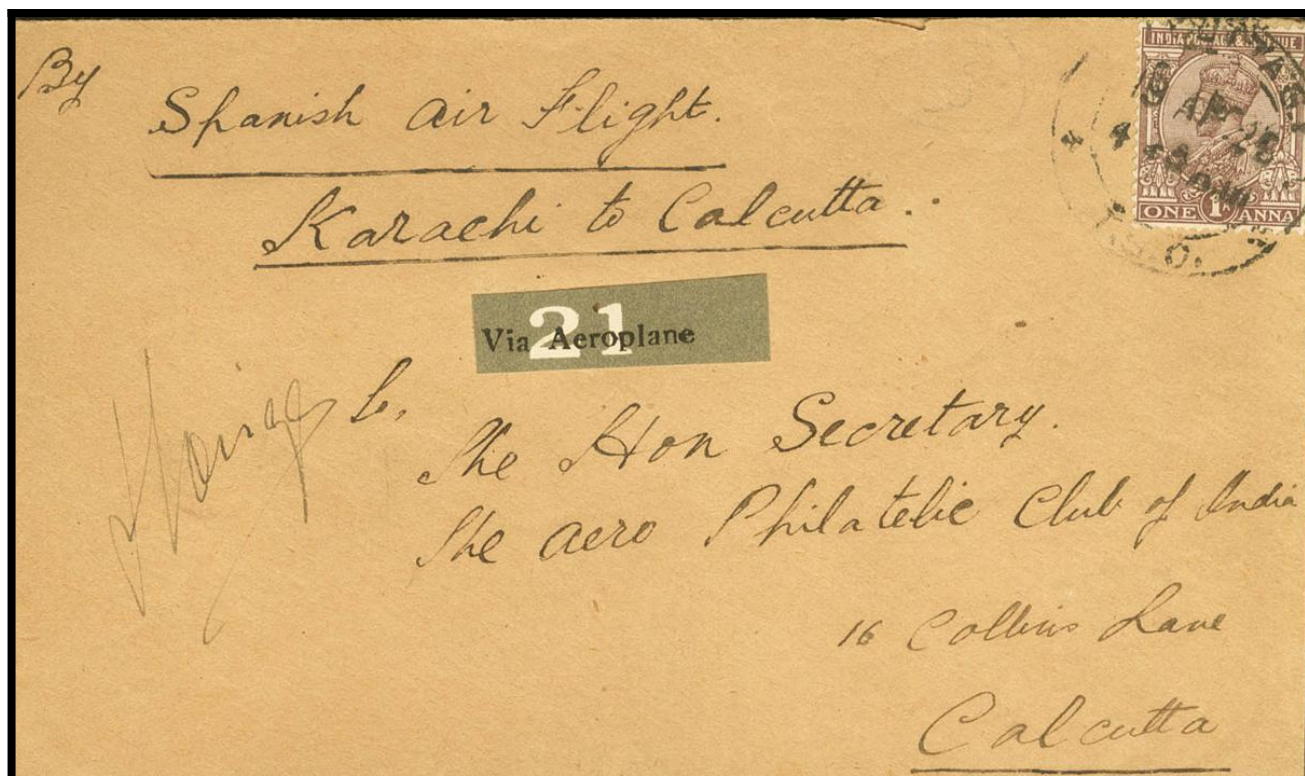 By
Spanish Air Flight.
Karachi to Calcutta.
INDIA POSTAGE & REVENUE
AP. 26
ONE 1A ANNA
21
Via Aeroplane
The Hon Secretary.
The Aero Philatelic Club of India
16 Collins Lane
Calcutta